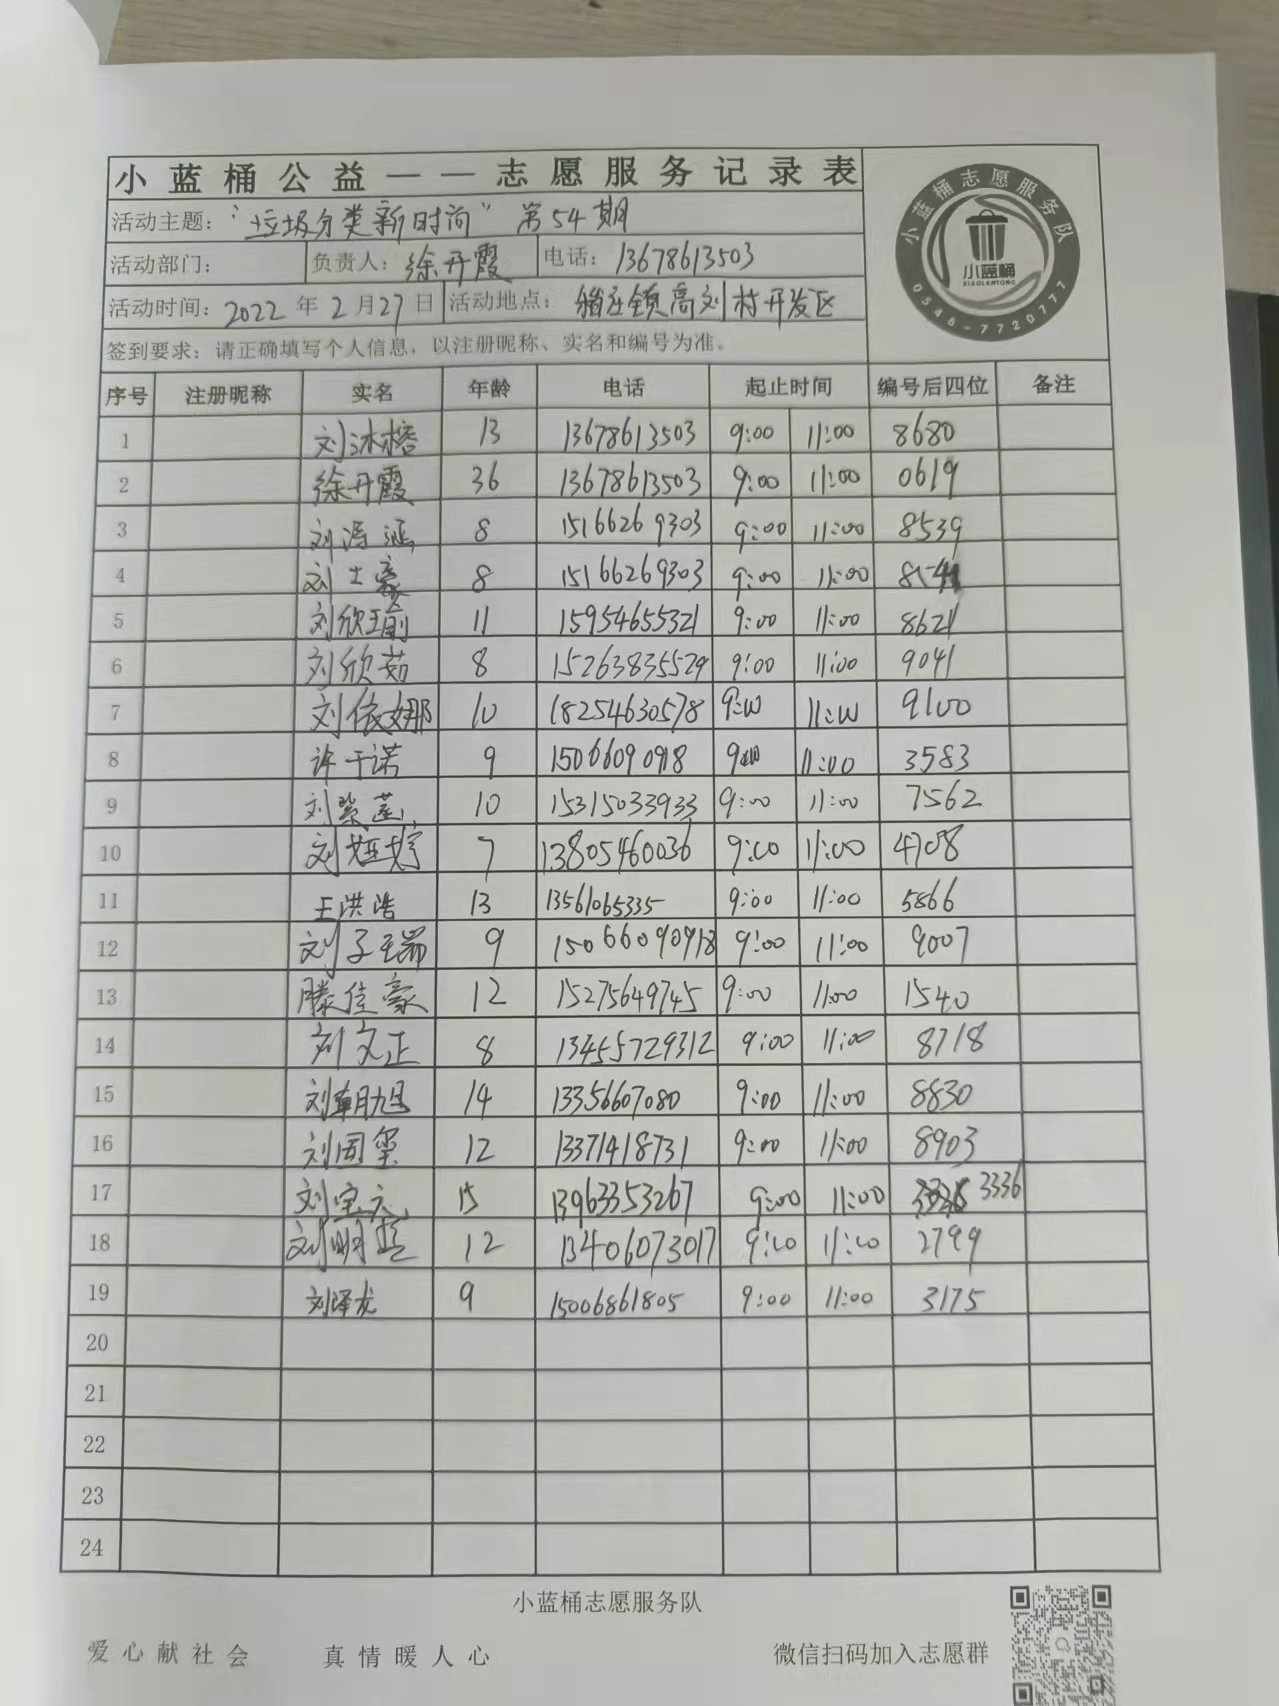 小蓝桶公益——志愿服务记录表
小蓝桶志愿服务队
小蓝桶
XIAOLANTONG
0546-7720777
活动主题：“垃圾分类新时尚”第54期
活动部门： 负责人：徐丹霞 电话：13678613503
活动时间：2022年2月27日 活动地点：稻庄镇高刘村开发区
签到要求：请正确填写个人信息，以注册昵称、实名和编号为准。
序号 注册昵称 实名 年龄 电话 起止时间 编号后四位 备注
1 刘沐榕 13 13678613503 9:00 11:00 8680
2 徐丹霞 36 13678613503 9:00 11:00 0619
3 刘 涵 8 15166269303 9:00 11:00 8539
4 刘士豪 8 15166269303 9:00 11:00
5 刘欣 11 15954655321 9:00 11:00 8621
6 刘欣茹 8 15263835529 9:00 11:00 9041
7 刘依娜 10 18254630578 9:00 11:00 9100
8 许千诺 9 15066090918 9:00 11:00 3583
9 刘紫莲 10 15315033933 9:00 11:00 7562
10 刘娅婷 7 13805460036 9:00 11:00 4708
11 王洪浩 13 13561065335 9:00 11:00 5866
12 刘子瑞 9 15066090918 9:00 11:00 9007
13 滕佳豪 12 15275649745 9:00 11:00 1540
14 刘文正 8 13455729312 9:00 11:00 8718
15 刘朝旭 14 13356607080 9:00 11:00 8830
16 刘国玺 12 13371418731 9:00 11:00 8903
17 刘宝元 15 13963353267 9:00 11:00 3336
18 刘明蓝 12 13406073017 9:00 11:00 2799
19 刘泽龙 9 15006861805 9:00 11:00 3175
20
21
22
23
24
小蓝桶志愿服务队
爱心献社会 真情暖人心 微信扫码加入志愿群